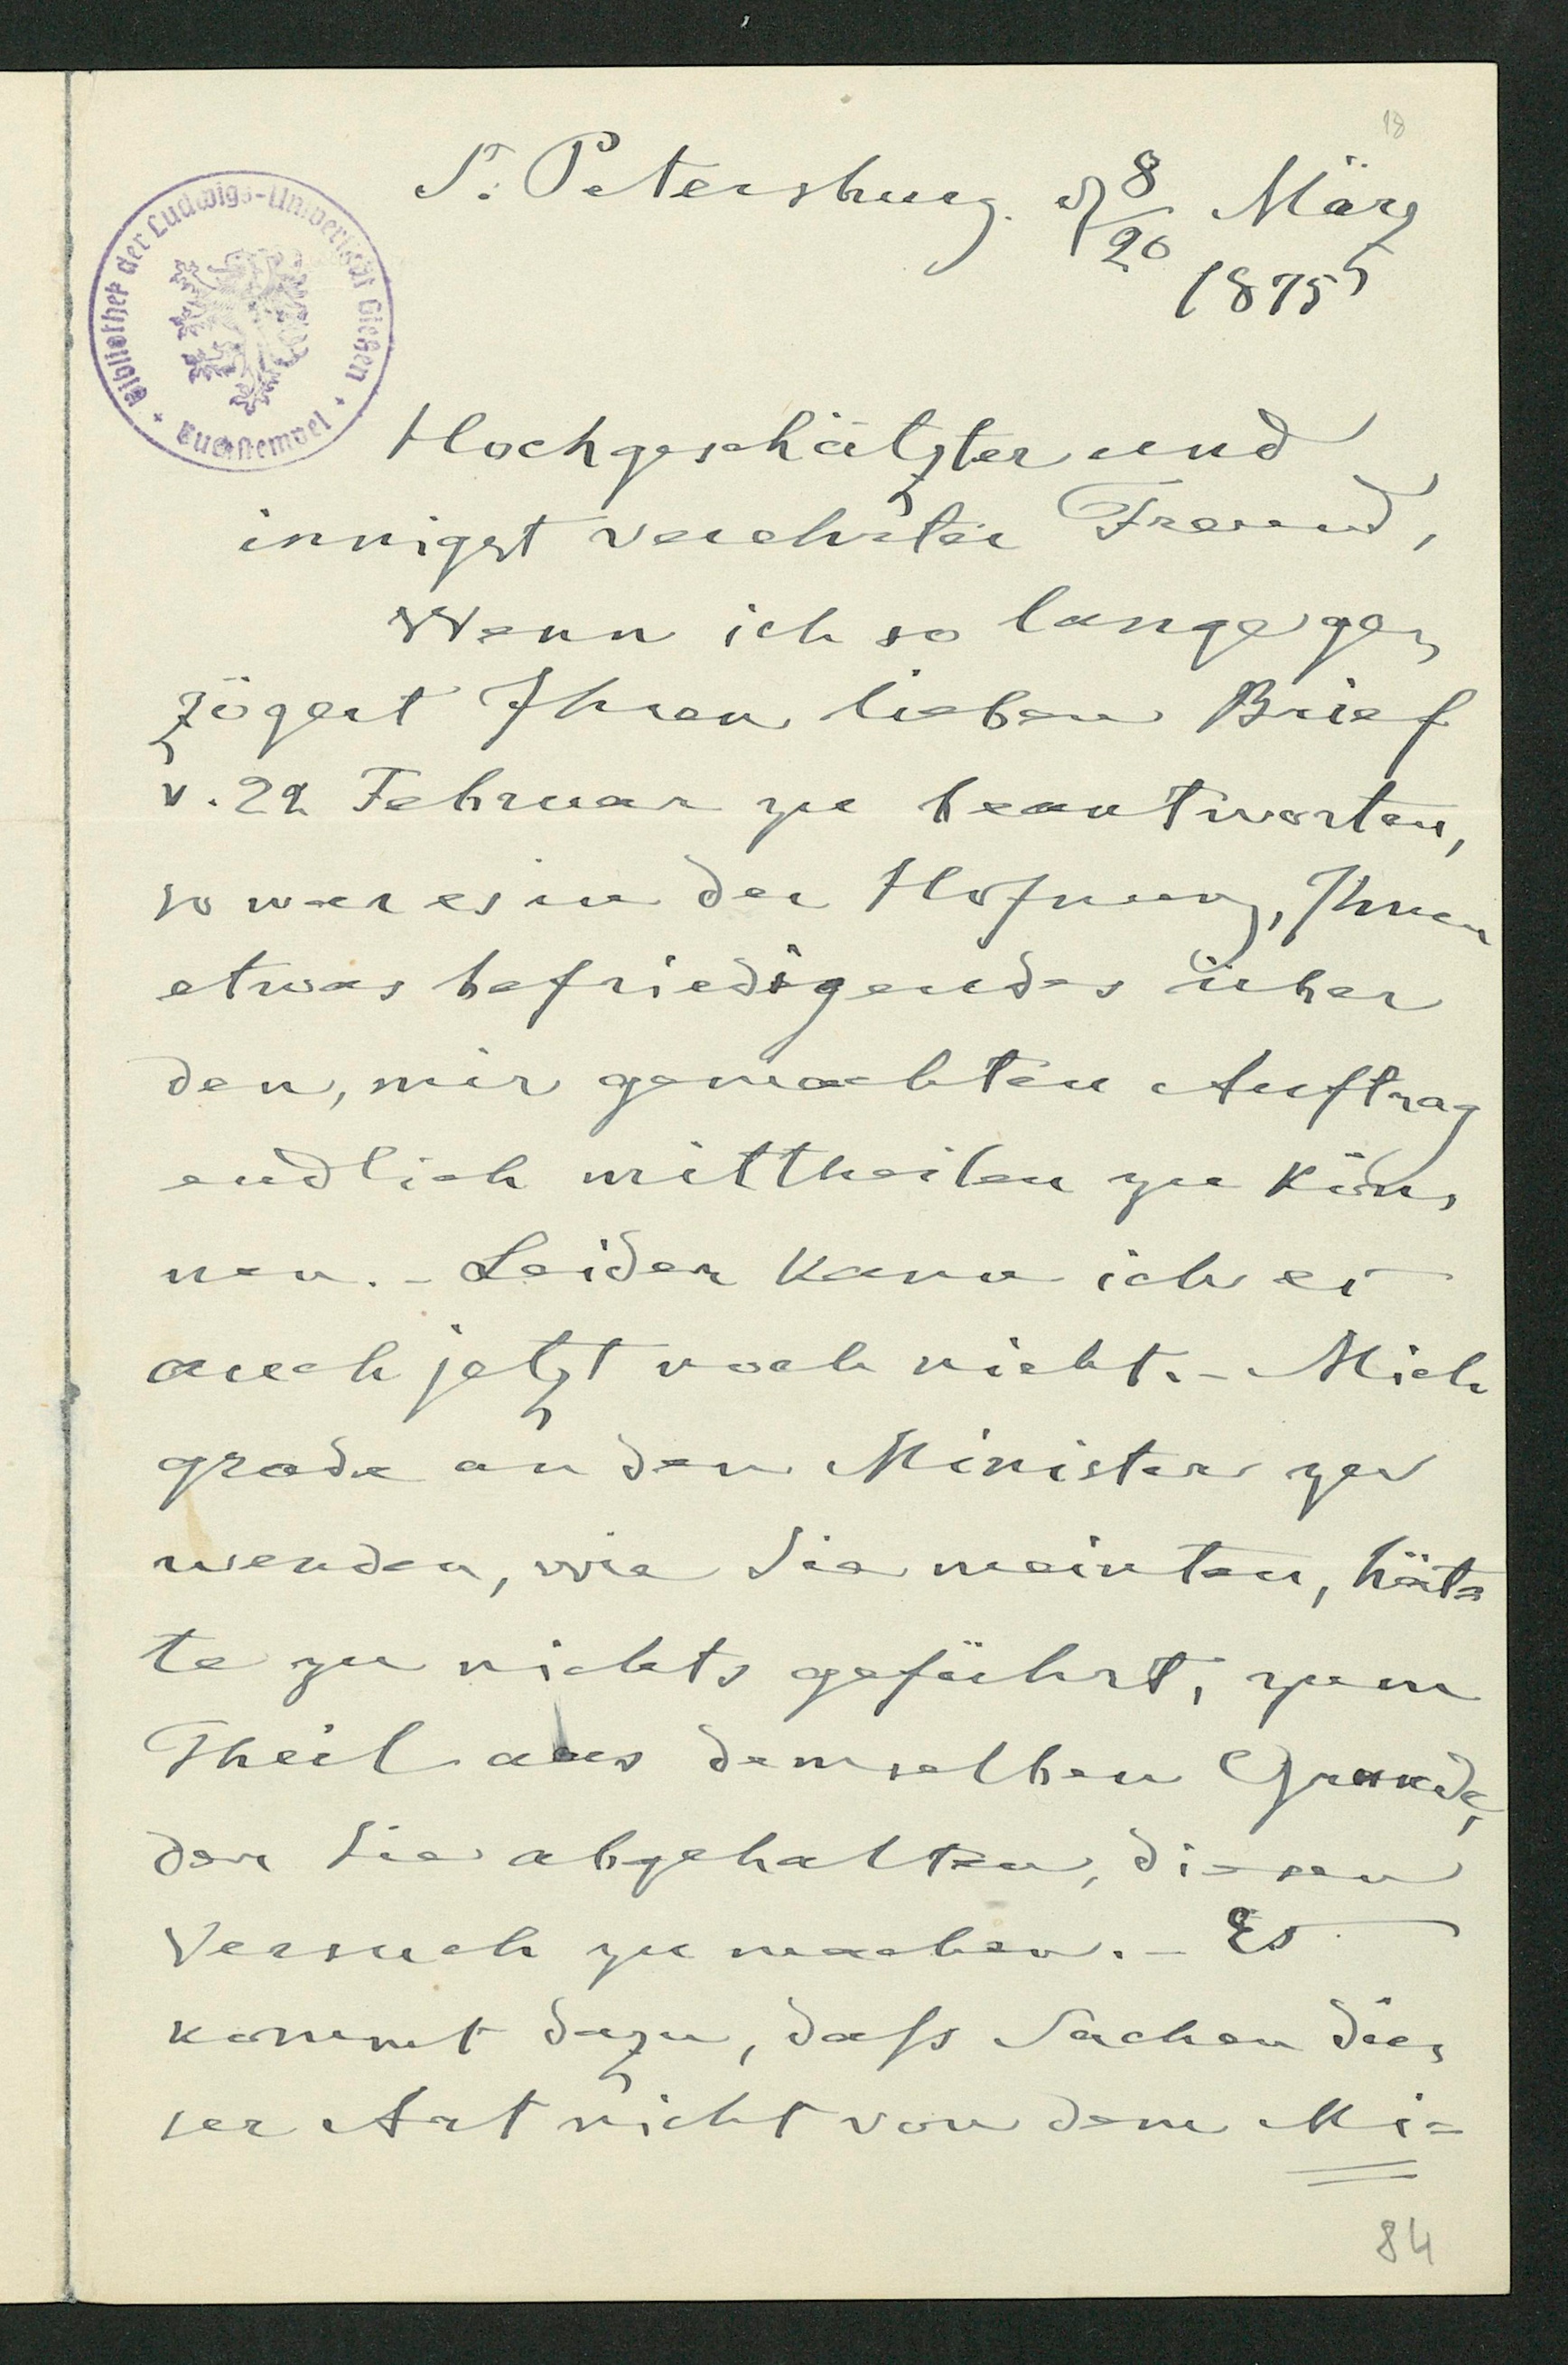 18
S. Petersburg. d 8/20 März
1875
Bibliothek der Ludwigs-Universität Gießen
Buchstempel
Hochgeschätzter und
innigst verehrter Freund,
Wenn ich so lange ge-
zögert Ihren lieben Brief
v. 22 Februar zu beantworten,
so war es in der Hofnung, Ihnen
etwas befriedigendes über
den, mir gemachten Auftrag
endlich mittheilen zu kön-
nen. - Leider kann ich es
auch jetzt noch nicht. - Mich
grade an den Minister zu
wenden, wie Sie meinten, hät-
te zu nichts geführt, zum
Theil aus demselben Grunde,
der Sie abgehalten, diesen
Versuch zu machen. - Es
kommt dazu, daſs Sachen die-
ser Art nicht von dem Mi=
84